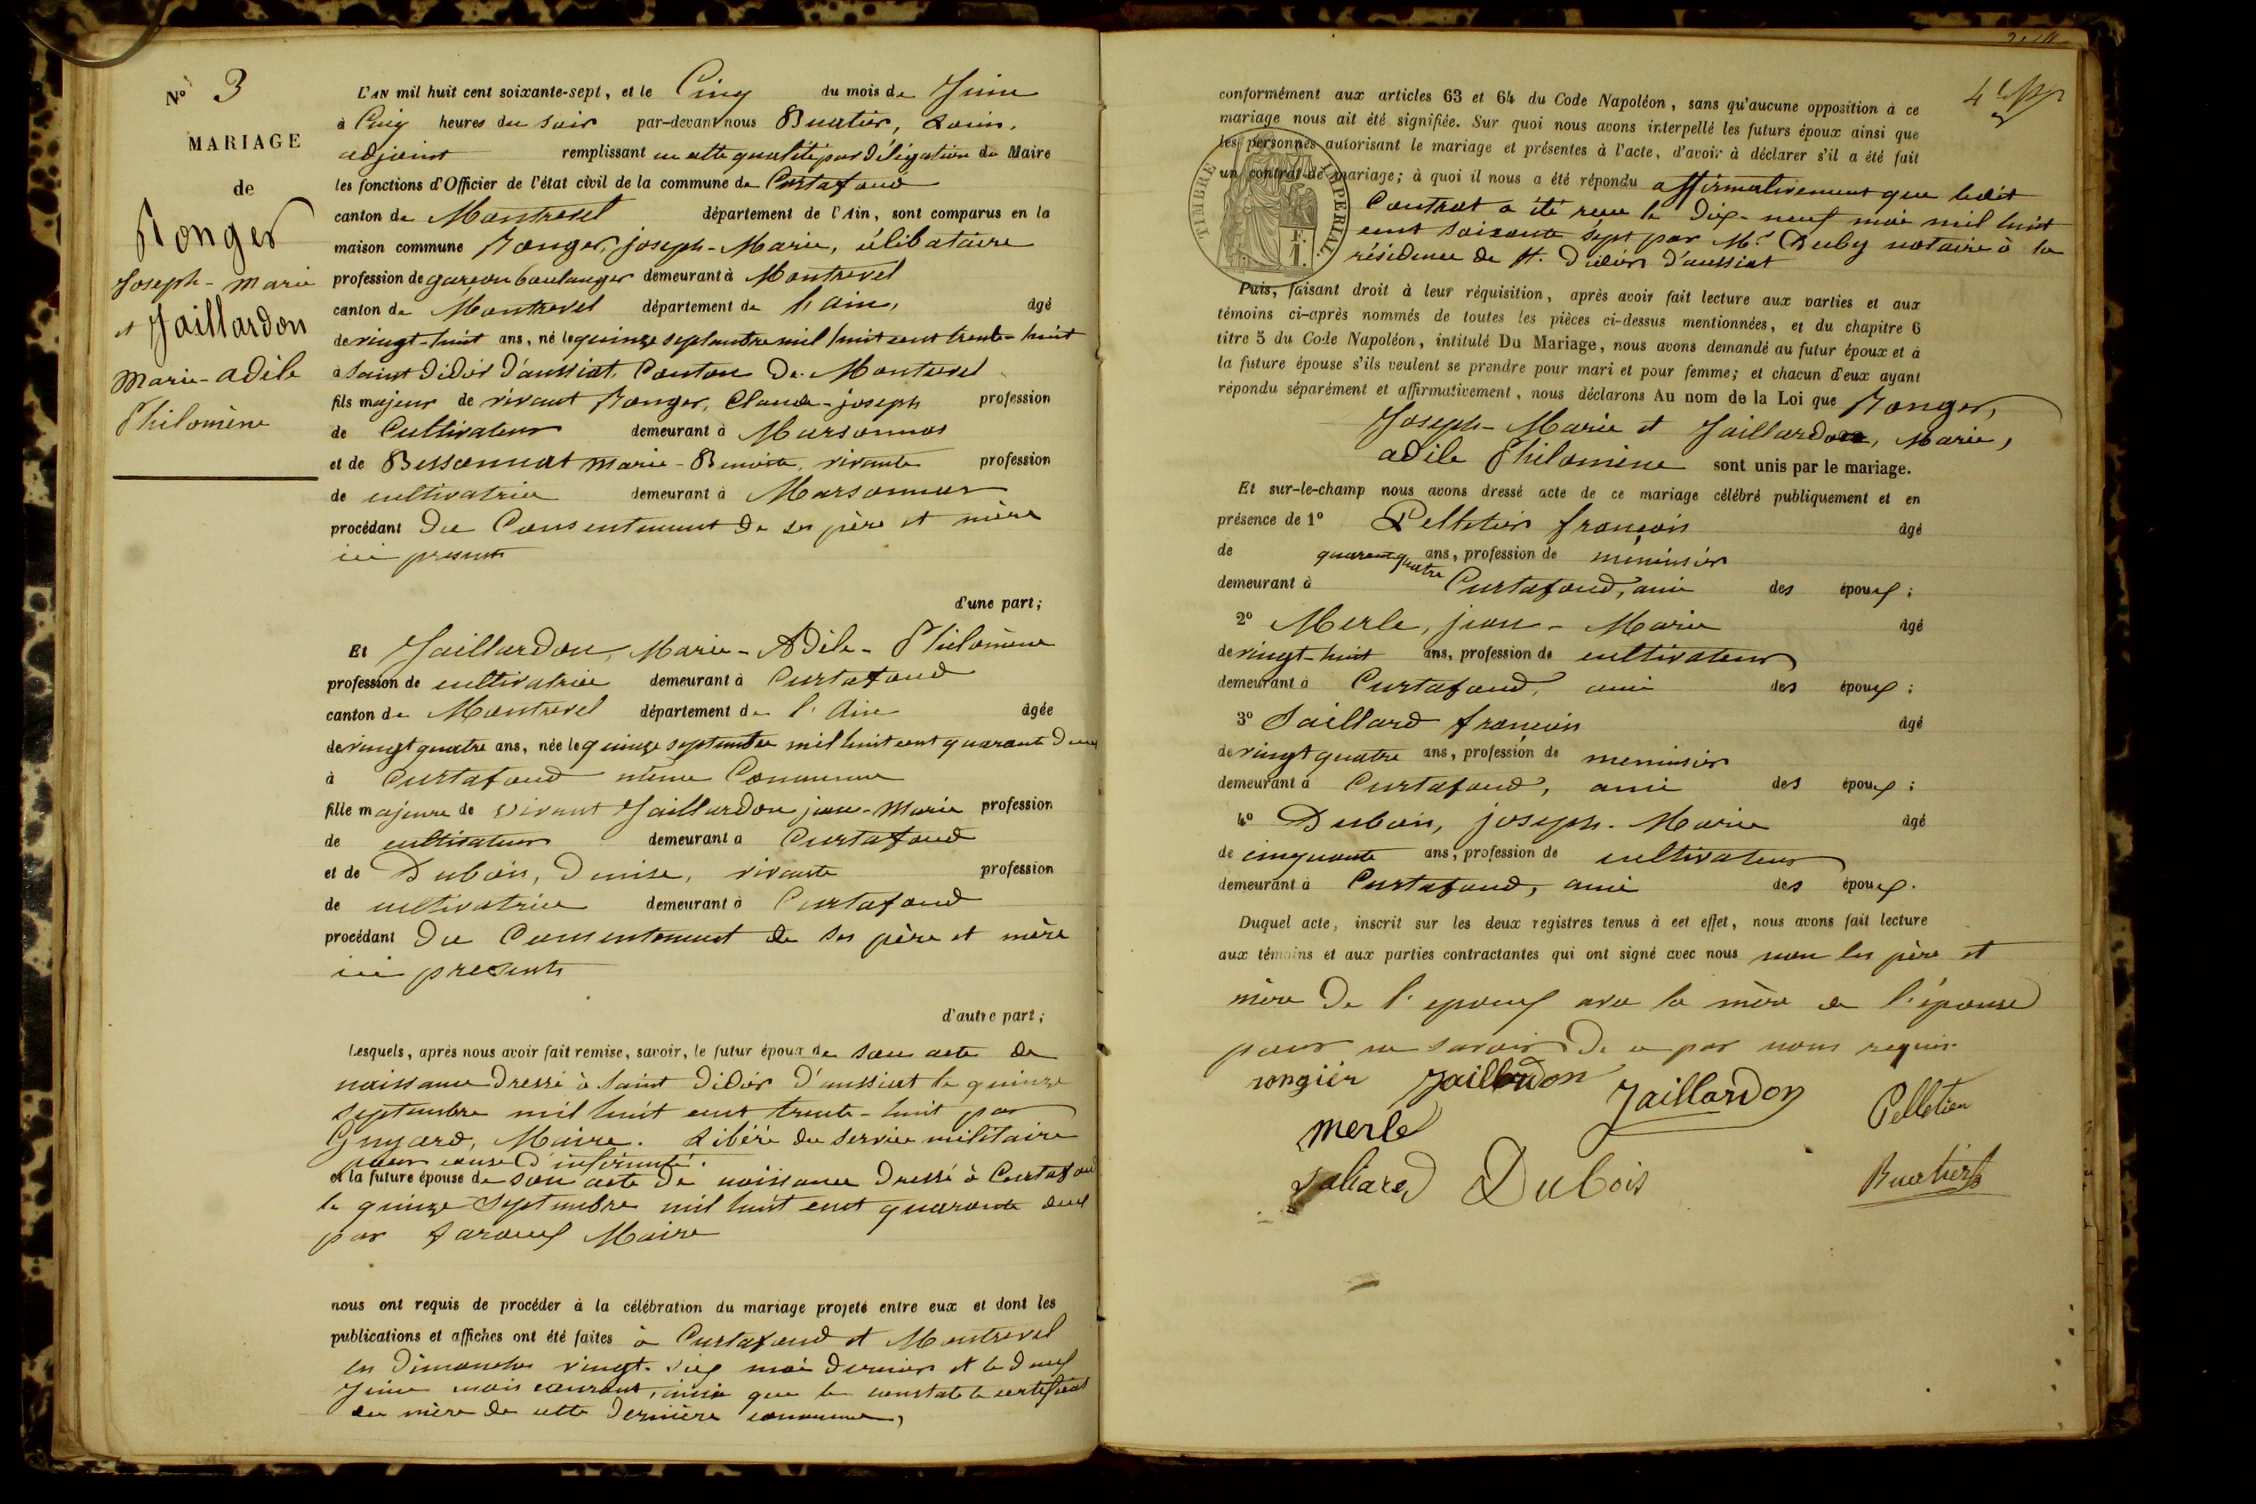 No 3
MARIAGE
de
Ronger
Joseph-Marie
et Jaillardon
Marie-Adèle
Philomène
L'AN mil huit cent soixante-sept, et le Cinq du mois de Juin
à Cinq heures du soir par-devant nous Buatier, Louis,
adjoint remplissant en cette qualité par délégation du Maire
les fonctions d'Officier de l'état civil de la commune de Curtafond
canton de Montrevel département de l'Ain, sont comparus en la
maison commune Ronger, joseph-Marie, célibataire
profession de garçon boulanger demeurant à Montrevel
canton de Montrevel département de l'ain, âgé
de vingt-huit ans, né le quinze septembre mil huit cent trente-huit
à Saint Didier d'aussiat, Canton de Montrevel
fils majeur de vivant Ronger, Claude-joseph profession
de Cultivateur demeurant à Marsonnas
et de Bessonnat marie-Benoite, vivante profession
de cultivatrice demeurant à Marsonnas
procédant du Consentement de ses père et mère
ici presents
d'une part;
Et Jaillardon, Marie-Adèle-Philomène
profession de cultivatrice demeurant à Curtafond
canton de Montrevel département de l'Ain âgée
de vingt quatre ans, née le quinze septembre mil huit cent quarante deux
à Curtafond même Commune
fille majeure de vivant Jaillardon jean-Marie profession
de cultivateur demeurant à Curtafond
et de Dubois, Denise, vivante profession
de cultivatrice demeurant à Curtafond
procédant du Consentement de ses père et mère
ici presents
d'autre part;
Lesquels, après nous avoir fait remise, savoir, le futur époux de son acte de
naissance dressé à Saint Didier d'aussiat le quinze
septembre mil huit cent trente-huit par
Guyard, Maire. Libéré du service militaire
pour cause d'infirmité.
et la future épouse de son acte de naissance dressé à Curtafond
le quinze Septembre mil huit cent quarante deux
par Maire
nous ont requis de procéder à la célébration du mariage projeté entre eux et dont les
publications et affiches ont été faites à Curtafond et Montrevel
les dimanches vingt-six mai dernier et le deux
Juin mois courant, ainsi que le constate le certificat
du mère de cette dernière commune,
conformément aux articles 63 et 64 du Code Napoléon, sans qu'aucune opposition à ce
mariage nous ait été signifiée. Sur quoi nous avons interpellé les futurs époux ainsi que
les personnes autorisant le mariage et présentes à l'acte, d'avoir à déclarer s'il a été fait
un contrat de mariage; à quoi il nous a été répondu affirmativement que ledit
Contrat a été reçu le dix-neuf mai mil huit
cent soixante sept par Me Duby notaire à la
résidence de St. Didier d'aussiat
TIMBRE IMPERIAL
Puis, faisant droit à leur réquisition, après avoir fait lecture aux parties et aux
témoins ci-après nommés de toutes les pièces ci-dessus mentionnées, et du chapitre 6
titre 5 du Code Napoléon, intitulé Du Mariage, nous avons demandé au futur époux et à
la future épouse s'ils veulent se prendre pour mari et pour femme; et chacun d'eux ayant
répondu séparément et affirmativement, nous déclarons Au nom de la Loi que Ronger,
Joseph-Marie et Jaillardon, Marie,
adèle Philomène sont unis par le mariage.
Et sur-le-champ nous avons dressé acte de ce mariage célébré publiquement et en
présence de 1° Pelletier françois âgé
de quarante quatre ans, profession de menuisier
demeurant à Curtafond, ami des époux;
2° Merle, jean-Marie âgé
de vingt-huit ans, profession de cultivateur
demeurant à Curtafond, ami des époux;
3° Saillard françois âgé
de vingt quatre ans, profession de menuisier
demeurant à Curtafond, ami des époux;
4° Dubois, joseph-Marie âgé
de cinquante ans, profession de cultivateur
demeurant à Curtafond, ami des époux.
Duquel acte, inscrit sur les deux registres tenus à cet effet, nous avons fait lecture
aux témoins et aux parties contractantes qui ont signé avec nous non les père et
mère de l'epoux avec la mère de l'épouse
pour ne savoir de ce par nous requis
rongier Jaillardon Jaillardon Pelletier
Merle
Saliard Dubois Buatier